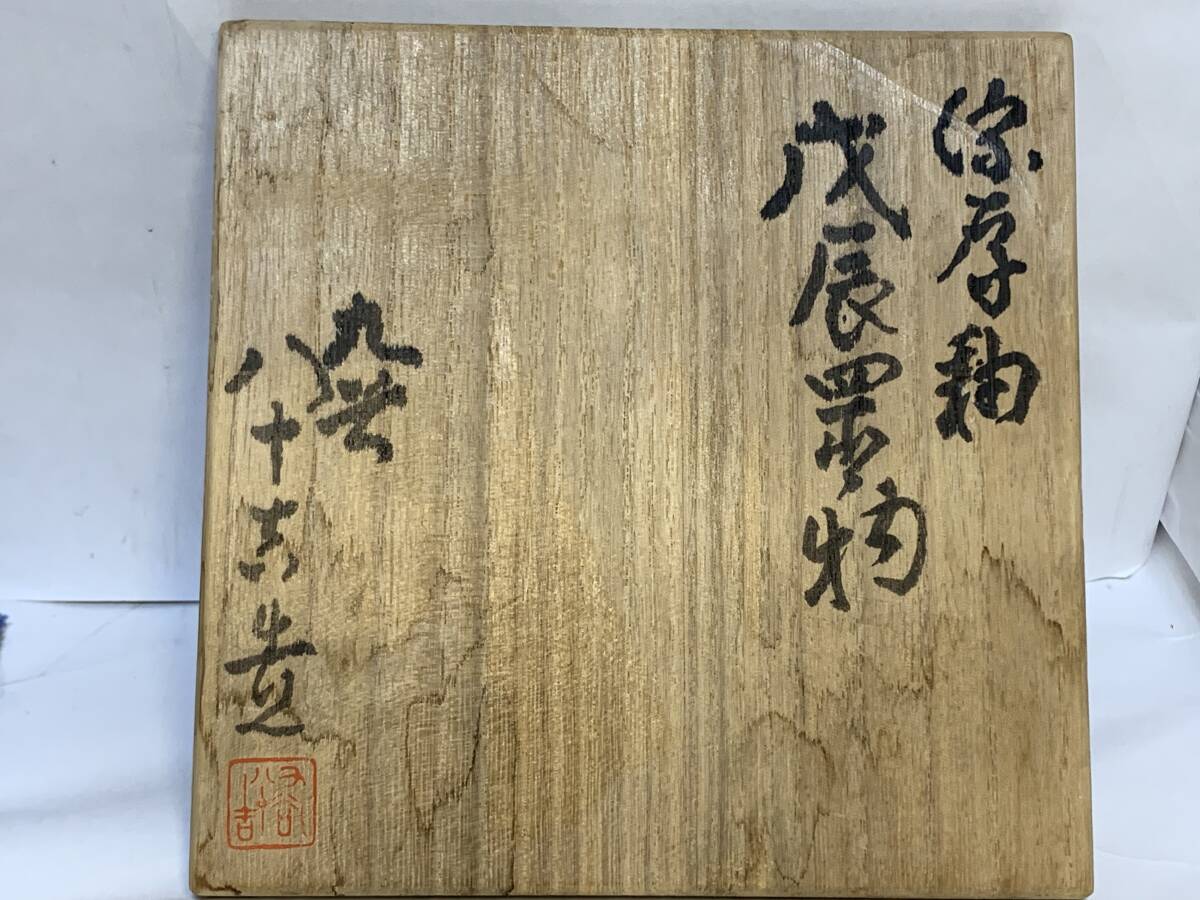 深厚釉
戊辰置物
九谷
八十吉造
九谷
八十吉